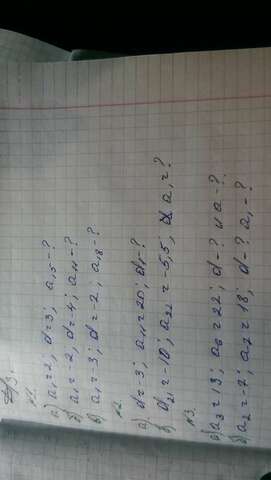 №1.
а) a₁=2; d=3; a₁₅-?
б) a₁=-2; d=4; a₁₁-?
в) a₁=-3; d=-2; a₁₈-?
№2.
а) d=-3; a₁₁=20; a₁-?
б) a₂₁=-10; a₂₂=-5,5, a₁=?
№3.
а) a₃=13; a₆=22; d-? и a-?
б) a₂=-7; a₇=18; d-? a₁-?